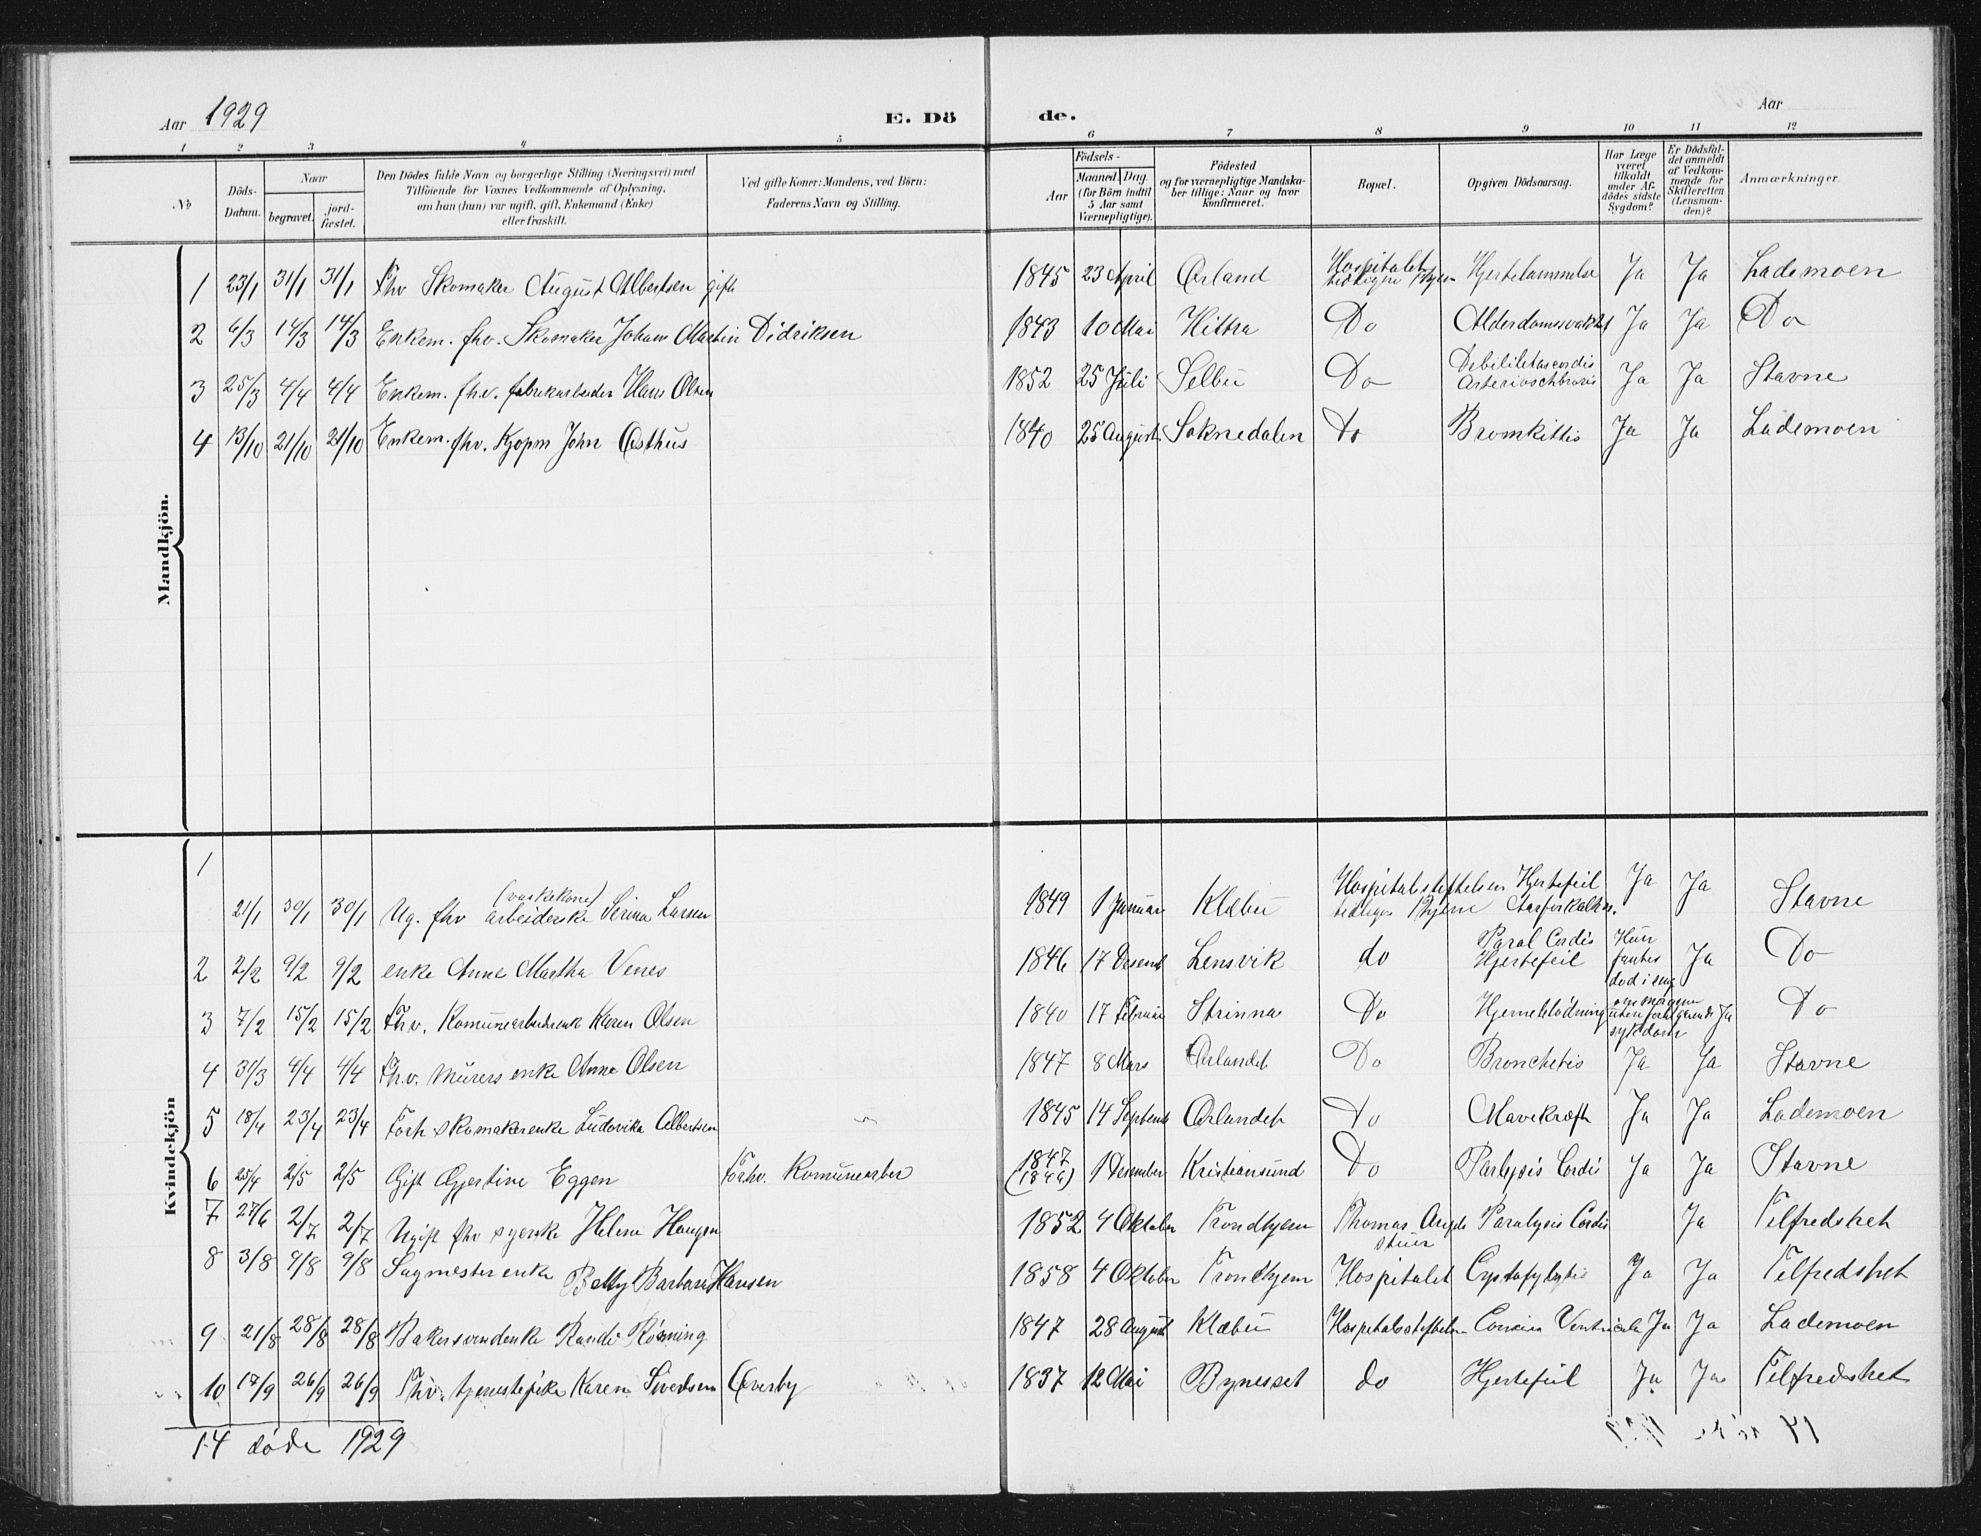 Aar 1929
E. Dö de.
Aar
1 2 3 4 5 6 7 8 9 10 11 12
No
Döds-Datum.
Naar
begravet.
jord-fæstet.
Den Dödes fulde Navn og borgerlige Stilling (Næringsvei) med
Tilföiende for Voxnes Vedkommende af Oplysning,
om han (hun) var ugift, gift, Enkemand (Enke)
eller fraskilt.
Ved gifte Koner: Mandens, ved Börn:
Faderens Navn og Stilling.
Födsels-
Aar
Maaned. Dag.
(for Börn indtil
5 Aar samt
Værnepligtige).
Födested
og for værnepligtige Mandska-
ber tillige: Naar og hvor
konfirmeret.
Bopæl.
Opgiven Dödsaarsag.
Har Læge
været
tilkaldt
under Af-
dödes sidste
Sygdom?
Er Dödsfal-
det anmeldt
af Vedkom-
mende for
Skifteretten
(Lensman-
den)?
Anmærkninger.
Mandkjön.
1 23/1 31/1 31/1 Fhv Skomaker August Albertsen gift 1845 23 April Ørland Hospitalet Hjertelammelse Ja Ja Lademoen
2 6/3 14/3 14/3 Enkem. fhv. Skomaker Johan Martin Didriksen 1843 10 Mai Hitra Do Ja Ja Do
3 25/3 4/4 4/4 Enkem. fhv. fabrikarbeider Hans Olsen 1852 25 Juli Selbu Do Ja Ja Stavne
4 13/10 21/10 21/10 Enkem. fhv. Kjøpm John Østhus 1840 25 August Soknedalen Do Bromkittis Ja Ja Lademoen
Kvindekjön
1 21/1 30/1 30/1 Ug. fhv (vaskekone) arbeiderske Serina Larsen 1849 1 Januar Klæbu Hospitalsstiftelsen Hjertefeil Ja Ja Stavne
2 2/2 9/2 9/2 enke Anne Martha Venes 1846 17 Desemb Lensvik do Paral Cordis Hjertefeil Hun fantes død i seng Ja Do
3 7/2 15/2 15/2 Fhv. Komunearbeiderenk Karen Olsen 1840 17 Februar Strinna Do Hjerneblødning om morgene uten foregaaende sykdom Ja Do
4 31/3 4/4 4/4 Fhv. murers enke Anna Olsen 1847 8 Mars Ørlandet Do Bronchetis Ja Ja Stavne
5 18/4 23/4 23/4 Forh skomakerenke Ludovika Albertsen 1845 14 Septemb Ørlandet Do Mavekræft Ja Ja Lademoen
6 25/4 2/5 2/5 Gift Gjertine Eggen Forhv. Komunearber 1847 (1846) 1 Desember Kristiansund Do Parlysis Cordis Ja Ja Stavne
7 27/6 2/7 2/7 Ugift fhv syerske Helene Haugen 1852 4 Oktober Trondhjem Thomas Angels stuer Paralysis Cordis Ja Tilfredshet
8 3/8 9/8 9/8 Sagmesterenke Betty Barbara Hansen 1858 4 Oktober Trondhjem Hospitalet Ja Ja Tilfredshet
9 21/8 28/8 28/8 Bakersvendenke Randi Rønning 1847 28 August Klæbu Hospitalsstiftelsen Ja Ja Lademoen
10 17/9 26/9 26/9 Fhv. tjenestepike Karen Sivertsen Øverby 1837 12 Mai Bynesset do Hjertefeil Ja Ja Tilfredshet
14 døde 1929